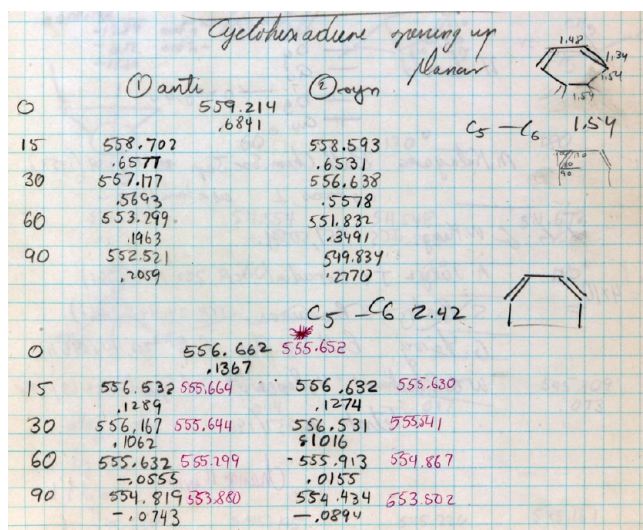 Cyclohexadiene opening up
planar
1.48
1.34
1.54
1.54
① anti ② syn
0 559.214
.6841
C5 - C6 1.54
15 558.702 558.593
.6577 .6531
30 557.177 556.638
.5693 .5578
90
60 553.299. 551.832
.1963 .3491
90 552.521 549.834
.2059 .2770
C5 - C6 2.42
0 556.662 555.652
.1367
15 556.532 555.664 556.632 555.630
.1289 .1274
30 556,167 555.644 556.531 555541
.1062 .1016
60 555.632 555.299 -555.913 554.867
-.0555 .0155
90 554.819 553.880 554.434 553.502
-.0743 -.0894